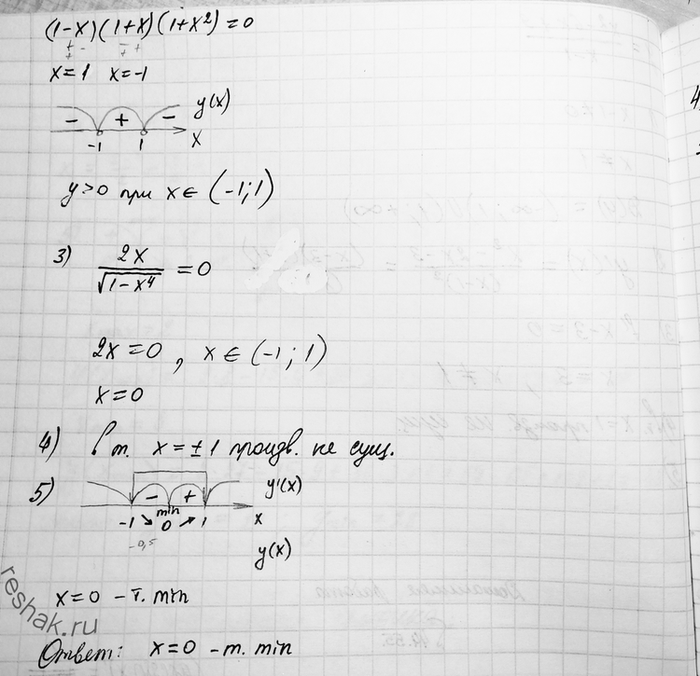 (1-x)(1+x)(1+x²)=0
x=1 x=-1
- + - y(x)
-1 1 x
y>0 при x∈(-1;1)
3) 2x/√(1-x⁴) = 0
2x=0, x∈(-1;1)
x=0
4) в т. x=±1 произв. не сущ.
5) - + y'(x)
min
-1 ↘ 0 ↗ 1 x
-0,5
y(x)
x=0 - т. min
Ответ: x=0 - т. min
reshak.ru